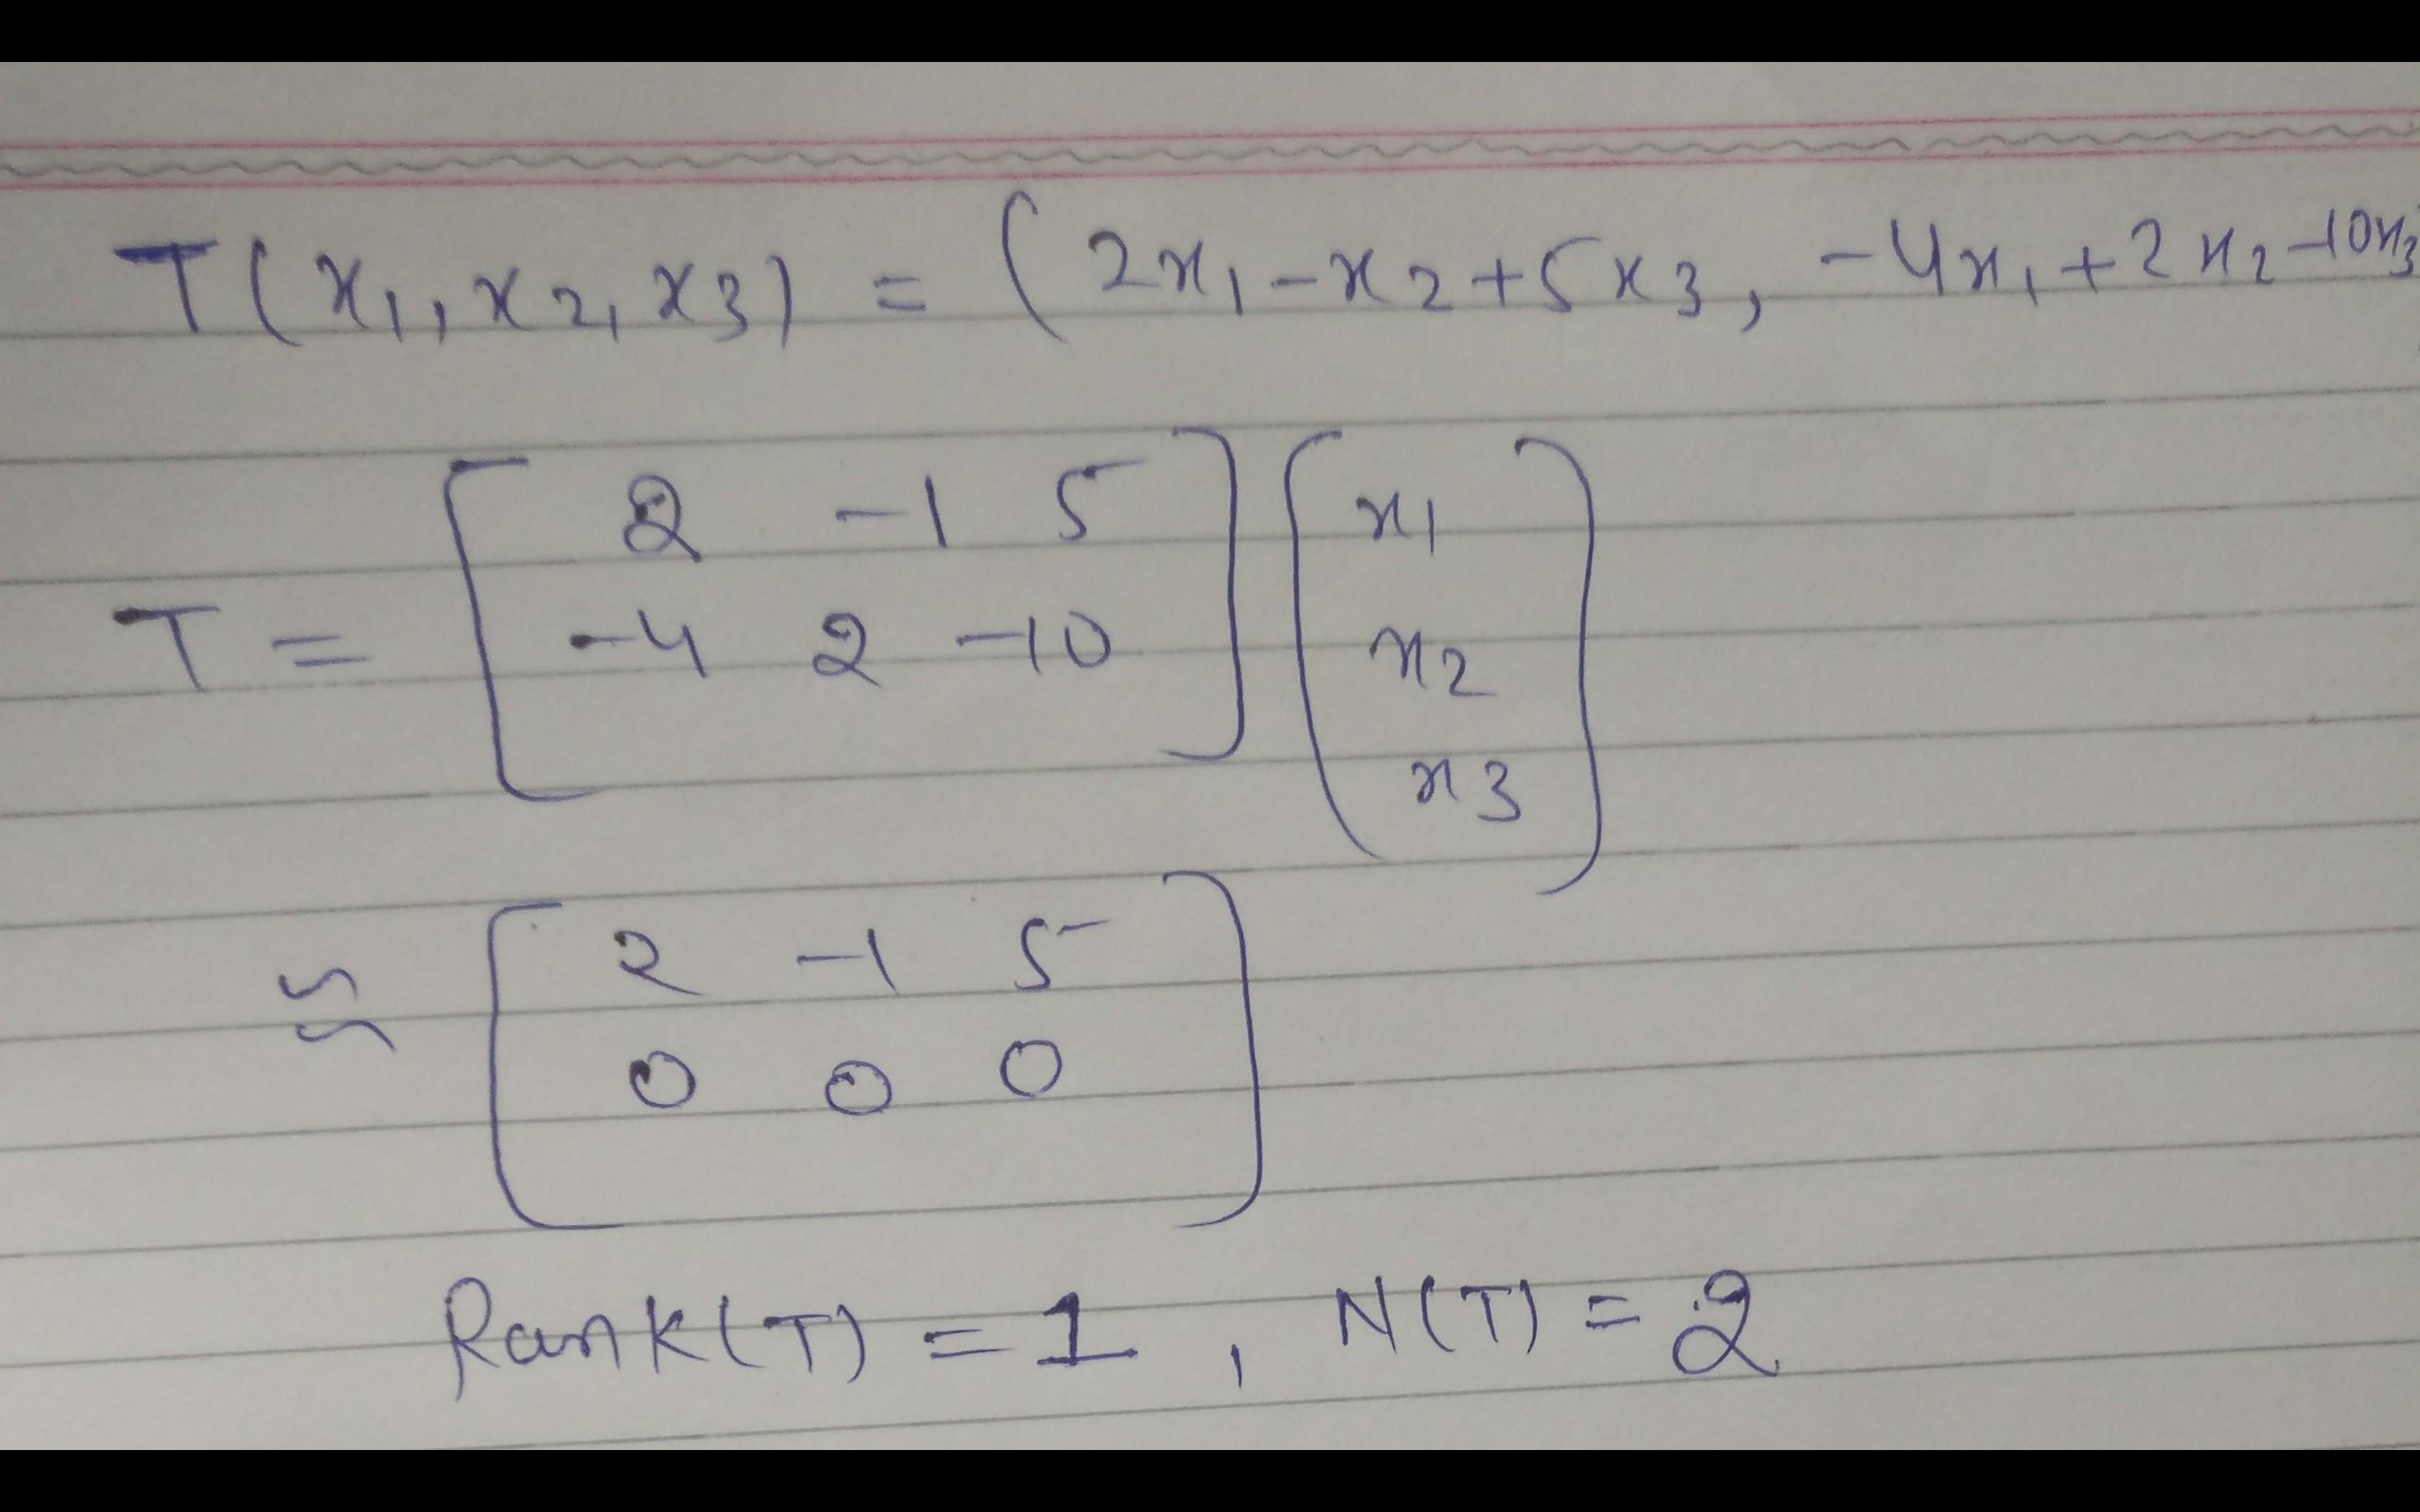 T(x₁, x₂, x₃) = (2x₁ - x₂ + 5x₃, -4x₁ + 2x₂ - 10x₃)
T = [ 2 -1 5 ] ( x₁ )
[ -4 2 -10 ] ( x₂ )
( x₃ )
≈ [ 2 -1 5 ]
[ 0 0 0 ]
Rank(T) = 1, N(T) = 2